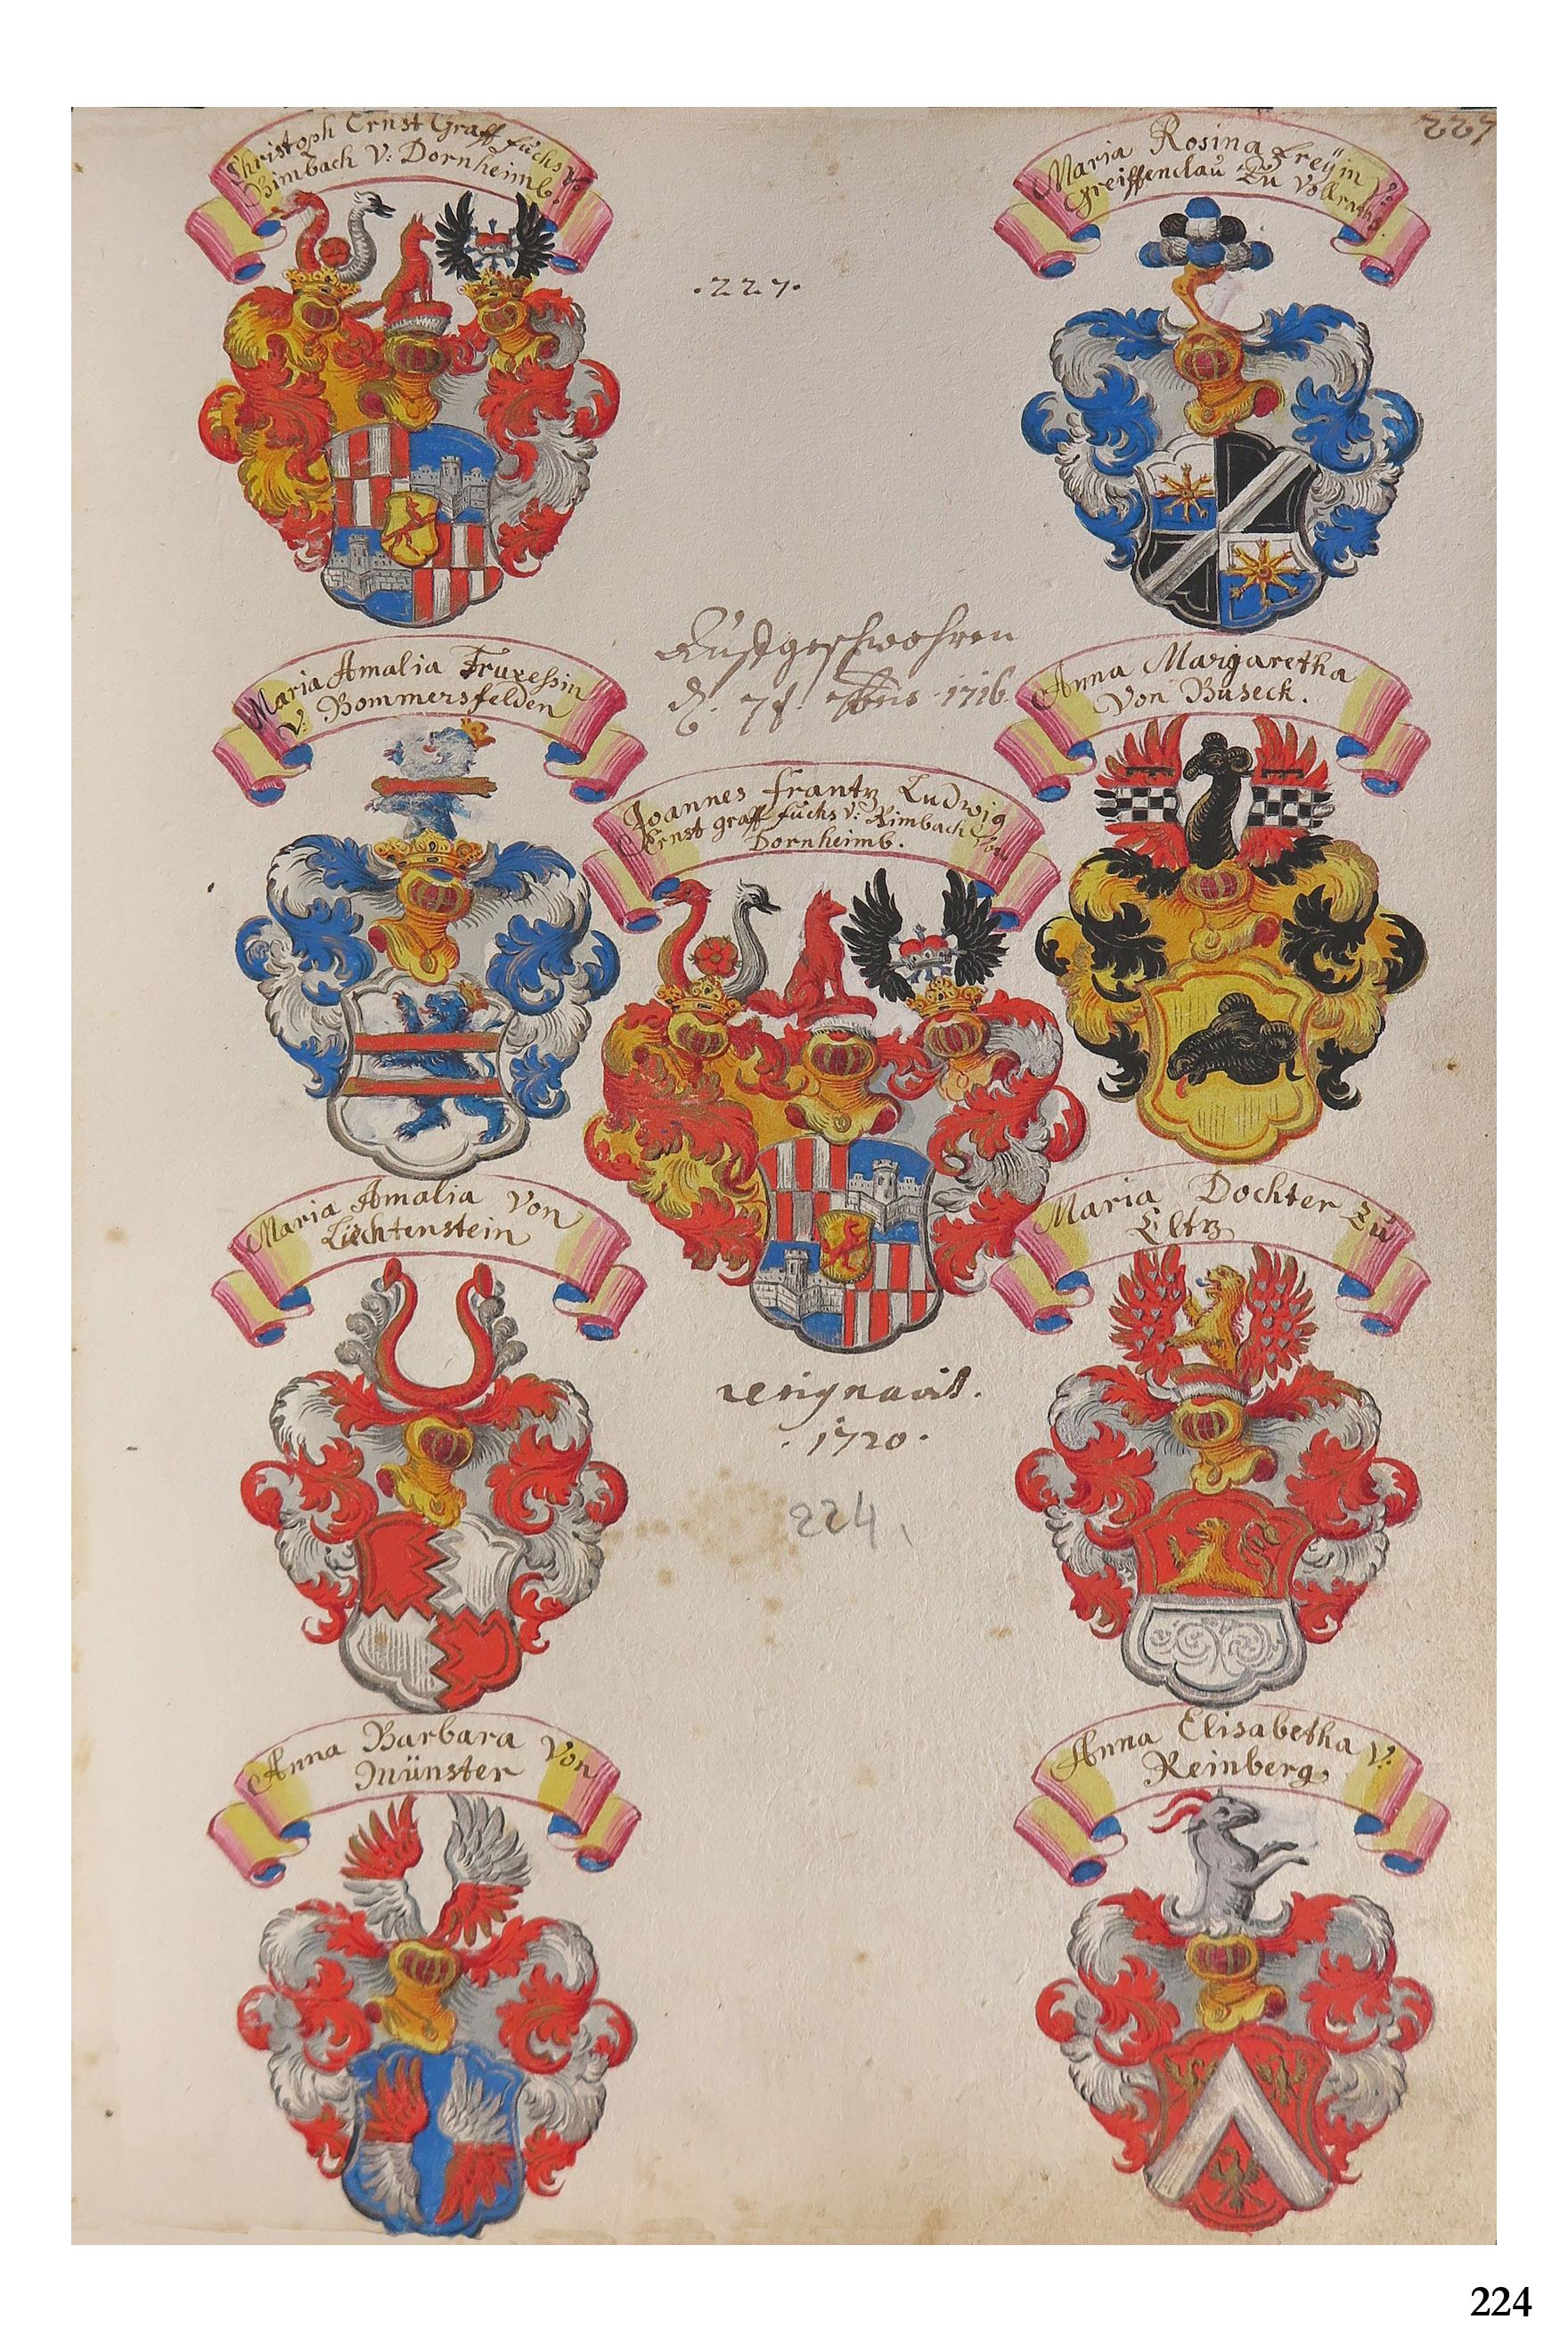 227
Christoph Ernst Graff fuchs V:
Bimbach V: Dornheimb.
Maria Rosina freÿin V:
greiffenclau Zu Vollraths.
.227.
Maria Amalia Truxessin
V: Bommersfelden
Auffgeschwohren
d. 7bris 1716.
Anna Margaretha
Von Buseck.
Joannes frantz Ludwig
Ernst graff fuchs v: Bimbach Von
Dornheimb.
Maria Amalia Von
Liechtenstein
Maria Dochter Zu
Eltz
resignavit.
.1720.
224
Anna Barbara Von
Münster
Anna Elisabetha V:
Reinberg
224